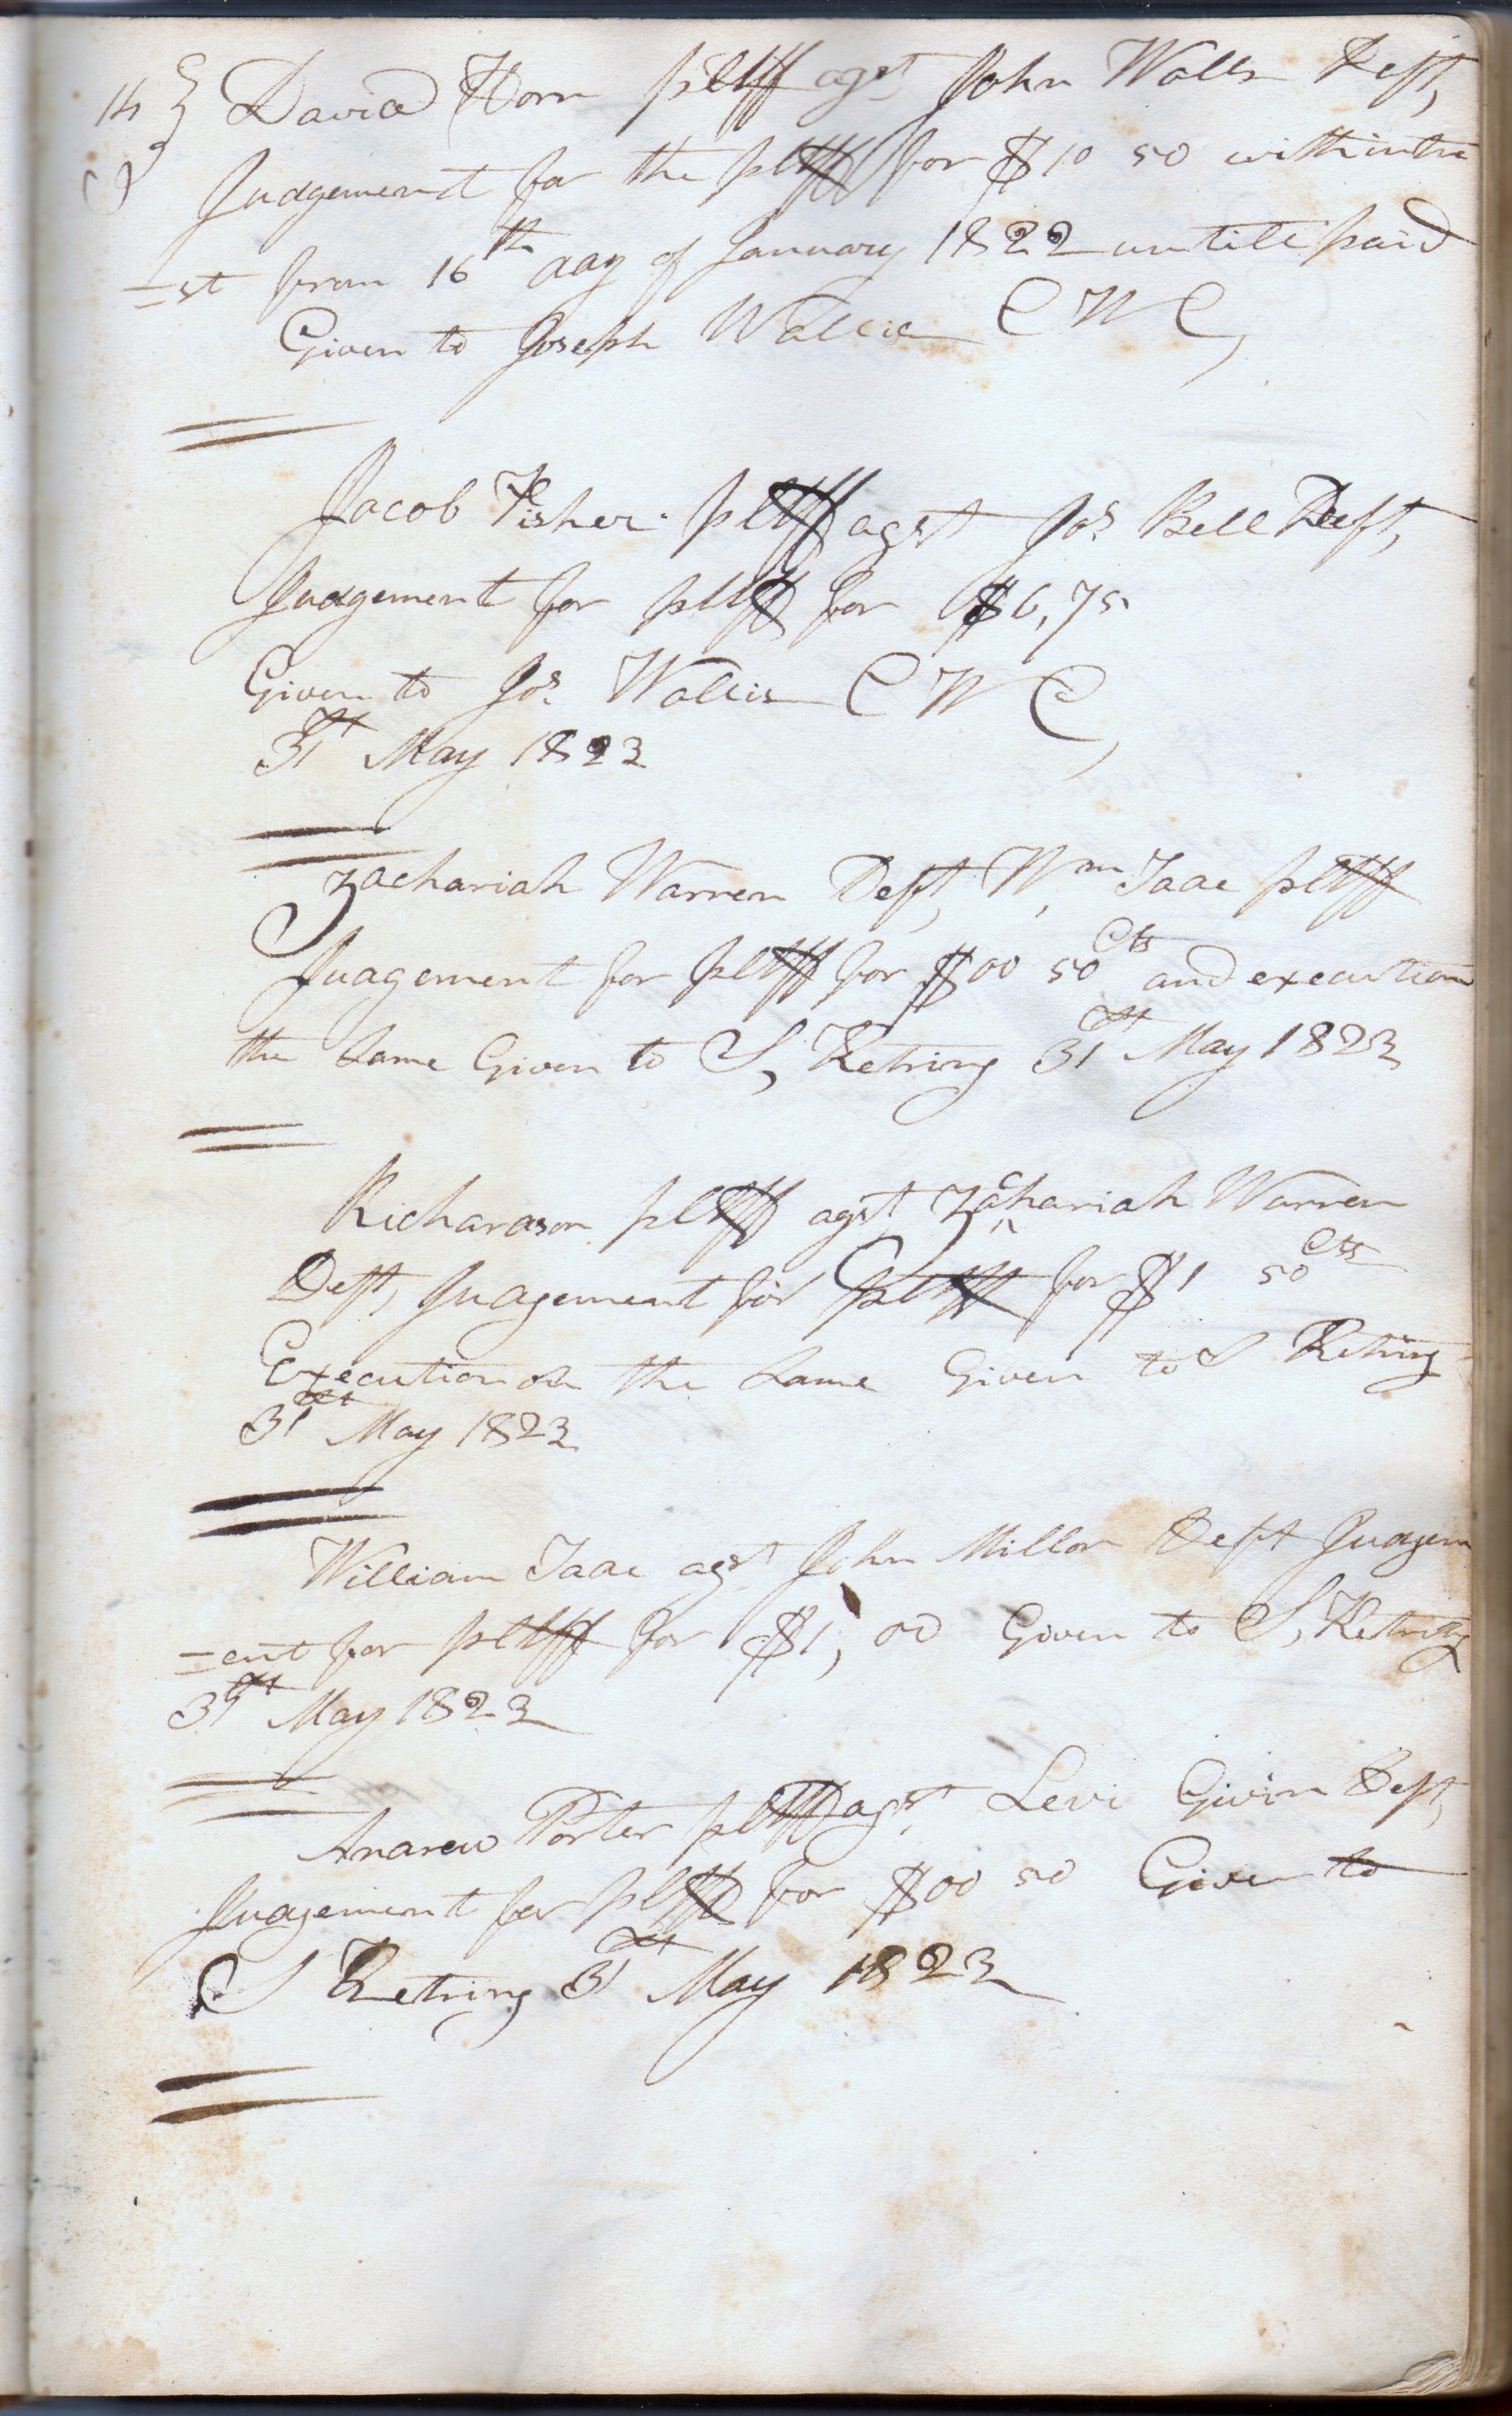 14 David Horn pltff agst John Walls Deft,
Judgement for the pltff for $10 50 with intre
=st from 16th day of January 1822 untill paid
Given to Joseph Wallis C W C,
Jacob Fisher pltff agst Jos Bell Deft,
Judgement for pltff for $6,75
Given to Jos. Wallis C W C,
31st May 1823
Zachariah Warren Deft, Wm Isaac pltff
Judgement for pltff for $00 50 Cts and execution
the Same Given to S, Retring 31st May 1823
Richardson pltff agst Zachariah Warren
Deft, Judgement for pltff for $1 50 Cts
Execution on the Same Given to S Retring
31st May 1823
William Isaac agst John Millor Deft Judgem
=ent for pltff for $1, 00 Given to S, Retring
31st May 1823
Andrew Porter pltff agst Levi Givin Deft,
Judgement for pltff for $00 50 Given to
S Retring 31st May 1823